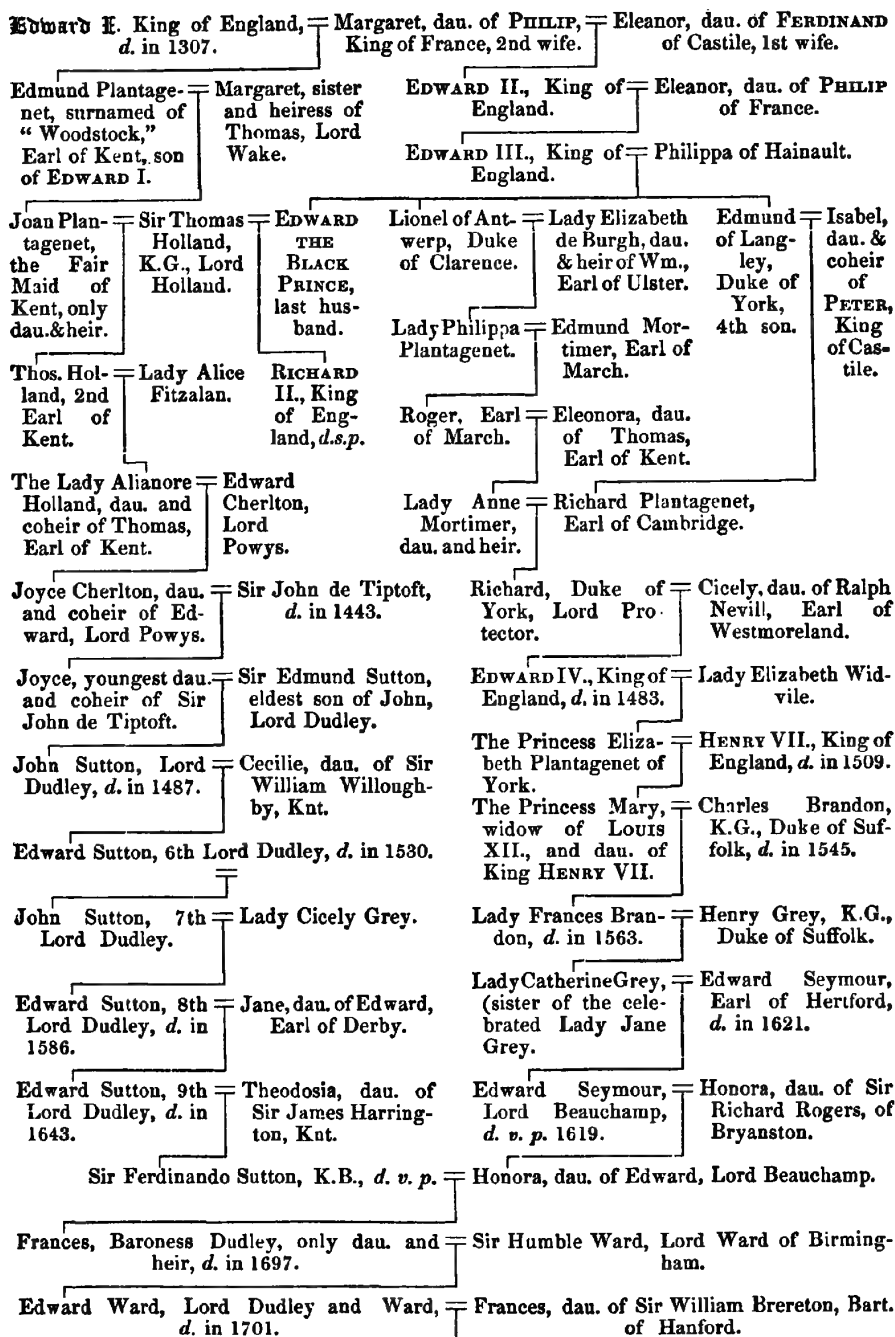 Edward I. King of England,
d. in 1307.
Margaret, dau. of PHILIP,
King of France, 2nd wife.
Eleanor, dau. of FERDINAND
of Castile, 1st wife.
Edmund Plantage-
net, surnamed of
"Woodstock,"
Earl of Kent, son
of EDWARD I.
Margaret, sister
and heiress of
Thomas, Lord
Wake.
EDWARD II., King of
England.
Eleanor, dau. of PHILIP
of France.
EDWARD III., King of
England.
Philippa of Hainault.
Joan Plan-
tagenet,
the Fair
Maid of
Kent, only
dau.&heir.
Sir Thomas
Holland,
K.G., Lord
Holland.
EDWARD
THE
BLACK
PRINCE,
last hus-
band.
Lionel of Ant-
werp, Duke
of Clarence.
Lady Elizabeth
de Burgh, dau.
& heir of Wm.,
Earl of Ulster.
Edmund
of Lang-
ley,
Duke of
York,
4th son.
Isabel,
dau. &
coheir
of
PETER,
King
of Cas-
tile.
Lady Philippa
Plantagenet.
Edmund Mor-
timer, Earl of
March.
Thos. Hol-
land, 2nd
Earl of
Kent.
Lady Alice
Fitzalan.
RICHARD
II., King
of Eng-
land, d.s.p.
Roger, Earl
of March.
Eleonora, dau.
of Thomas,
Earl of Kent.
The Lady Alianore
Holland, dau. and
coheir of Thomas,
Earl of Kent.
Edward
Cherlton,
Lord
Powys.
Lady Anne
Mortimer,
dau. and heir.
Richard Plantagenet,
Earl of Cambridge.
Joyce Cherlton, dau.
and coheir of Ed-
ward, Lord Powys.
Sir John de Tiptoft,
d. in 1443.
Richard, Duke of
York, Lord Pro-
tector.
Cicely, dau. of Ralph
Nevill, Earl of
Westmoreland.
Joyce, youngest dau.
and coheir of Sir
John de Tiptoft.
Sir Edmund Sutton,
eldest son of John,
Lord Dudley.
EDWARD IV., King of
England, d. in 1483.
Lady Elizabeth Wid-
vile.
John Sutton, Lord
Dudley, d. in 1487.
Cecilie, dau. of Sir
William Willough-
by, Knt.
The Princess Eliza-
beth Plantagenet of
York.
HENRY VII., King of
England, d. in 1509.
The Princess Mary,
widow of LOUIS
XII., and dau. of
King HENRY VII.
Charles Brandon,
K.G., Duke of Suf-
folk, d. in 1545.
Edward Sutton, 6th Lord Dudley, d. in 1530.
John Sutton, 7th
Lord Dudley.
Lady Cicely Grey.
Lady Frances Bran-
don, d. in 1563.
Henry Grey, K.G.,
Duke of Suffolk.
Edward Sutton, 8th
Lord Dudley, d. in
1586.
Jane, dau. of Edward,
Earl of Derby.
Lady Catherine Grey,
(sister of the cele-
brated Lady Jane
Grey.
Edward Seymour,
Earl of Hertford,
d. in 1621.
Edward Sutton, 9th
Lord Dudley, d. in
1643.
Theodosia, dau. of
Sir James Harring-
ton, Knt.
Edward Seymour,
Lord Beauchamp,
d. v. p. 1619.
Honora, dau. of Sir
Richard Rogers, of
Bryanston.
Sir Ferdinando Sutton, K.B., d. v. p.
Honora, dau. of Edward, Lord Beauchamp.
Frances, Baroness Dudley, only dau. and
heir, d. in 1697.
Sir Humble Ward, Lord Ward of Birming-
ham.
Edward Ward, Lord Dudley and Ward,
d. in 1701.
Frances, dau. of Sir William Brereton, Bart.
of Hanford.